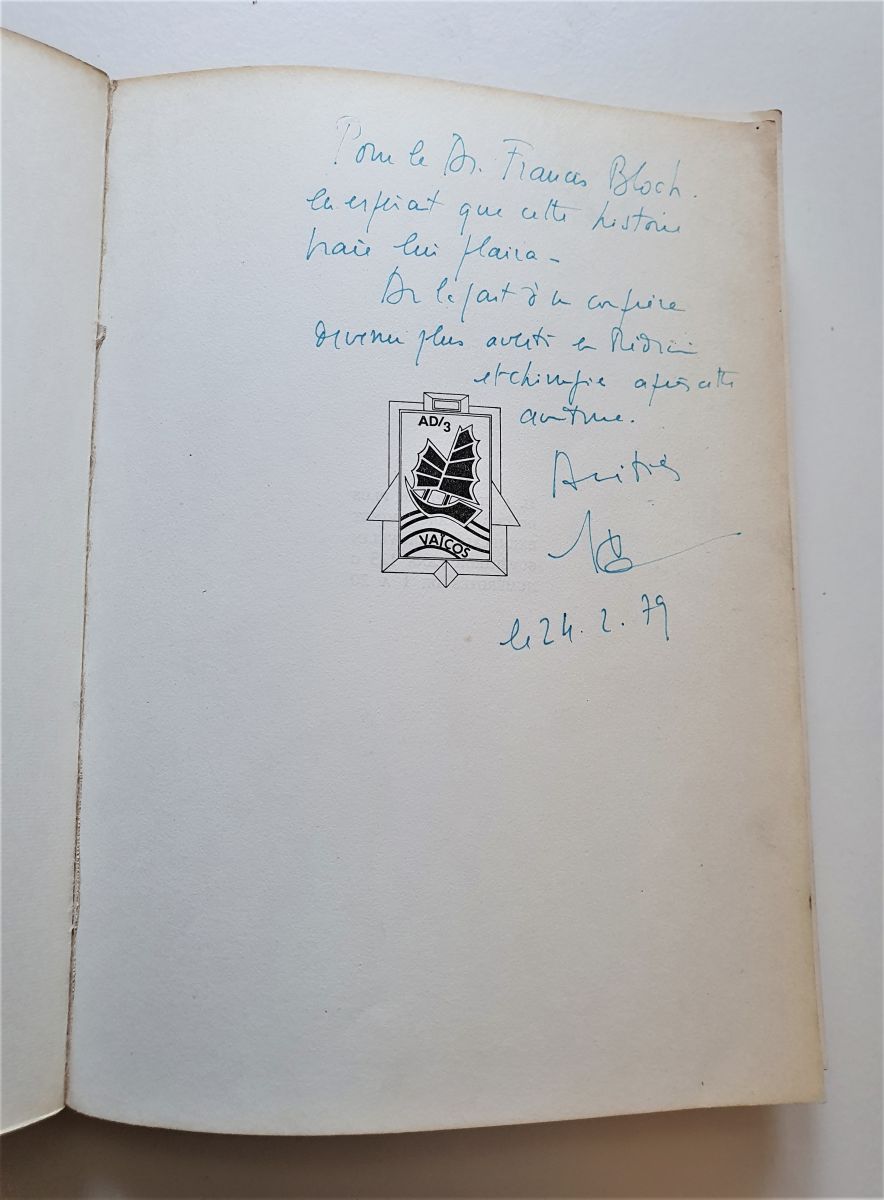 Pour le Dr. Francis Bloch.
en espérant que cette histoire
vraie lui plaira -
De la part d'un confrère
devenu plus averti en Médecine
et chirurgie après cette
aventure.
Amitiés
le 24. 2. 79
AD/3
VAÏCOS